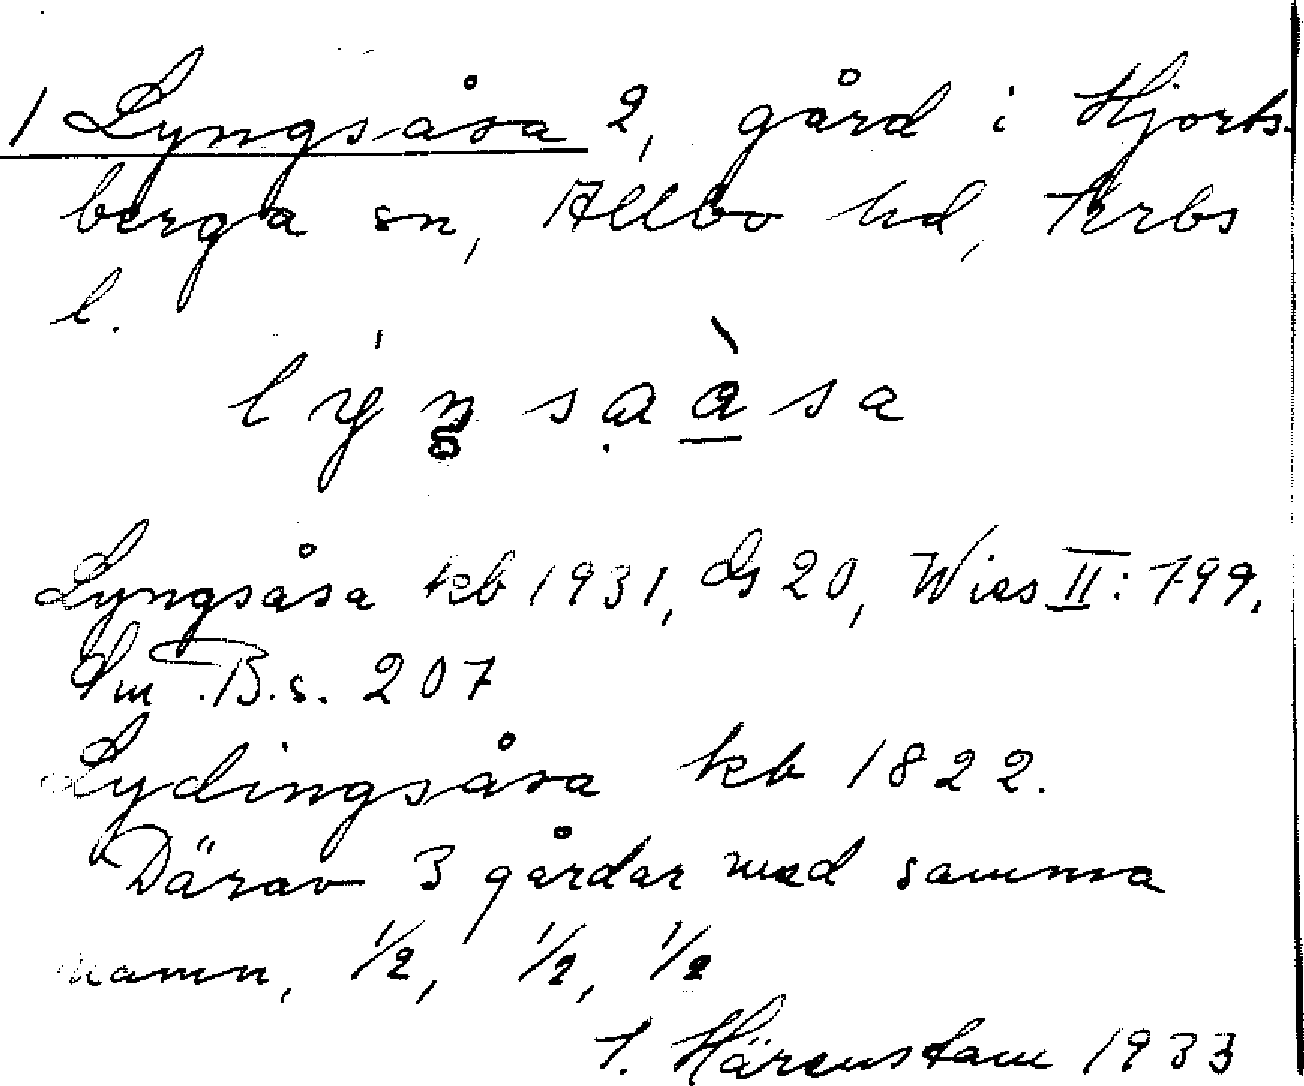 1 Lyngsåsa 2, gård i Hjorts-
berga sn, Allbo hd, Krbs
l.
Lyngsåsa kb 1931, GS 20, Wies II: 799.
Sm B.s. 207
Lydingsåsa kb 1822.
Därav 3 gårdar med samma
namn, 1/2, 1/2, 1/2
Härenstam 1933